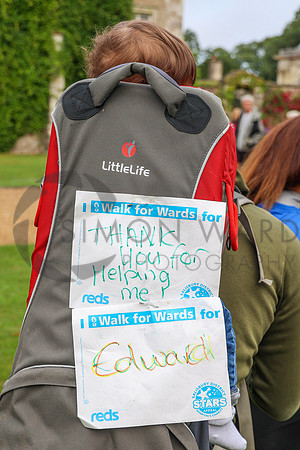 LittleLife
I DO Walk for Wards for
THANK
you for
Helping
me!
reds
I DO Walk for Wards for
Edward
reds
STARS
APPEAL
SIMON WARD
PHOTOGRAPHY